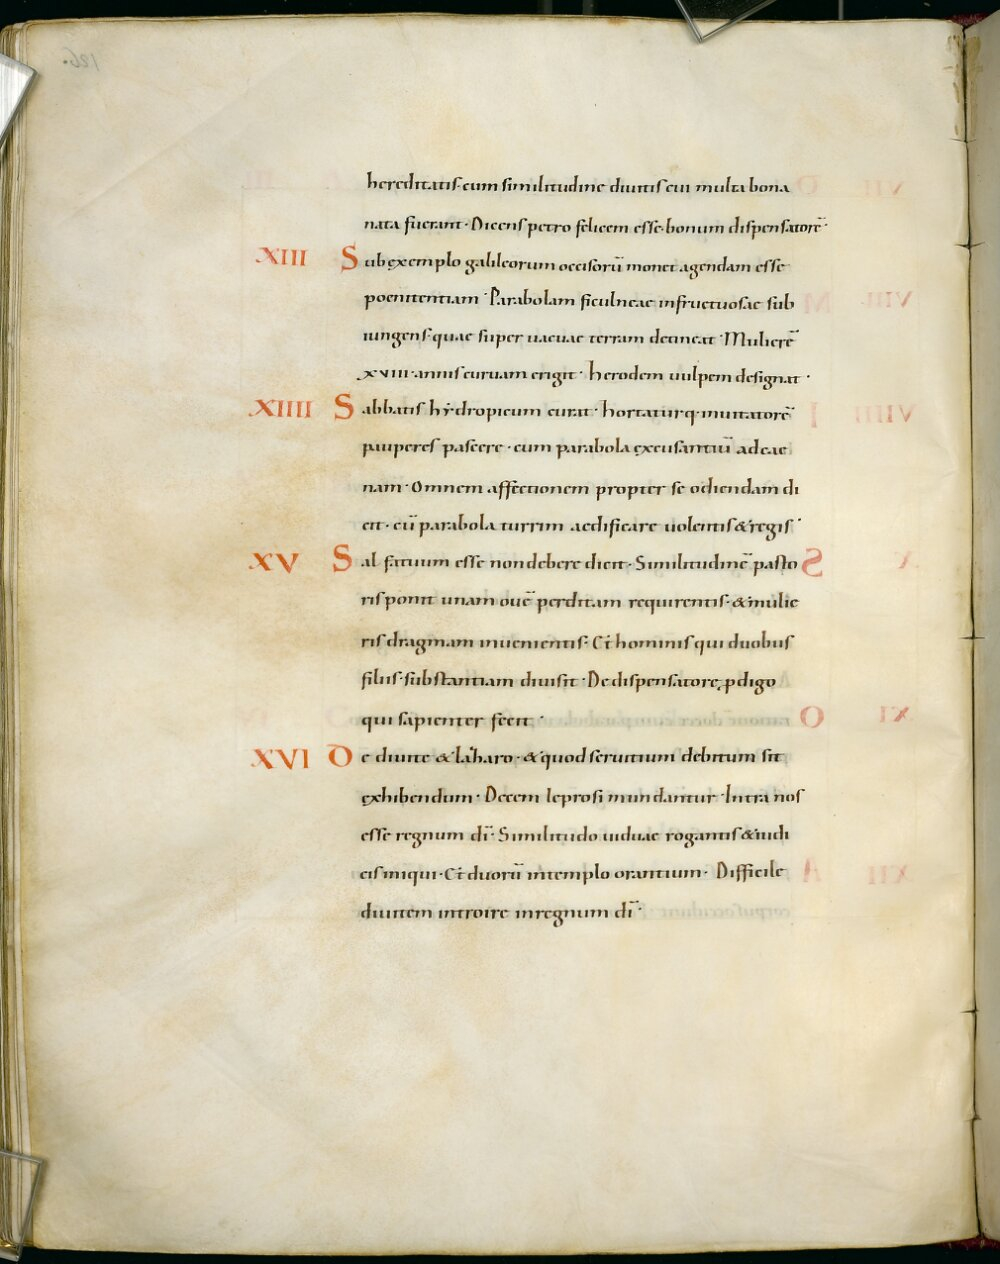 hereditatis cum similitudine diuitis cui multa bona
nata fuerant · Dicens petro felicem esse bonum dispensatorē ·
XIII Sub exemplo galileorum occisorū monet agendam esse
poenitentiam · Parabolam ficulneae infructuosae sub
iungens quae super uacuae terram detineat · Mulierē
xviii · annis curuam erigit · herodem uulpem designat ·
XIIII Sabbatis hẏdropicum curat · hortatur q· inuitatorē
pauperes pascere · cum parabola excusantiū ad cae
nam · Omnem affectionem propter se odiendam di
cit · cū parabola turrim aedificare uolentis & regis ·
XV Sal fatuum esse non debere dicit · Similitudinē pasto
ris ponit unam ouē perditam requirentis · & mulie
ris dragmam inuenientis · Et hominis qui duobus
filiis substantiam diuisit · De dispensatore ꝓdigo
qui sapienter fecit ·
XVI De diuite & lazaro · & quod seruitium debitum sit
exhibendum · Decem leprosi mundantur · Intra nos
esse regnum dī · Similitudo uiduae rogantis & iudi
cis iniqui · Et duorū in templo orantium · Difficile
diuitem introire in regnum dī ·